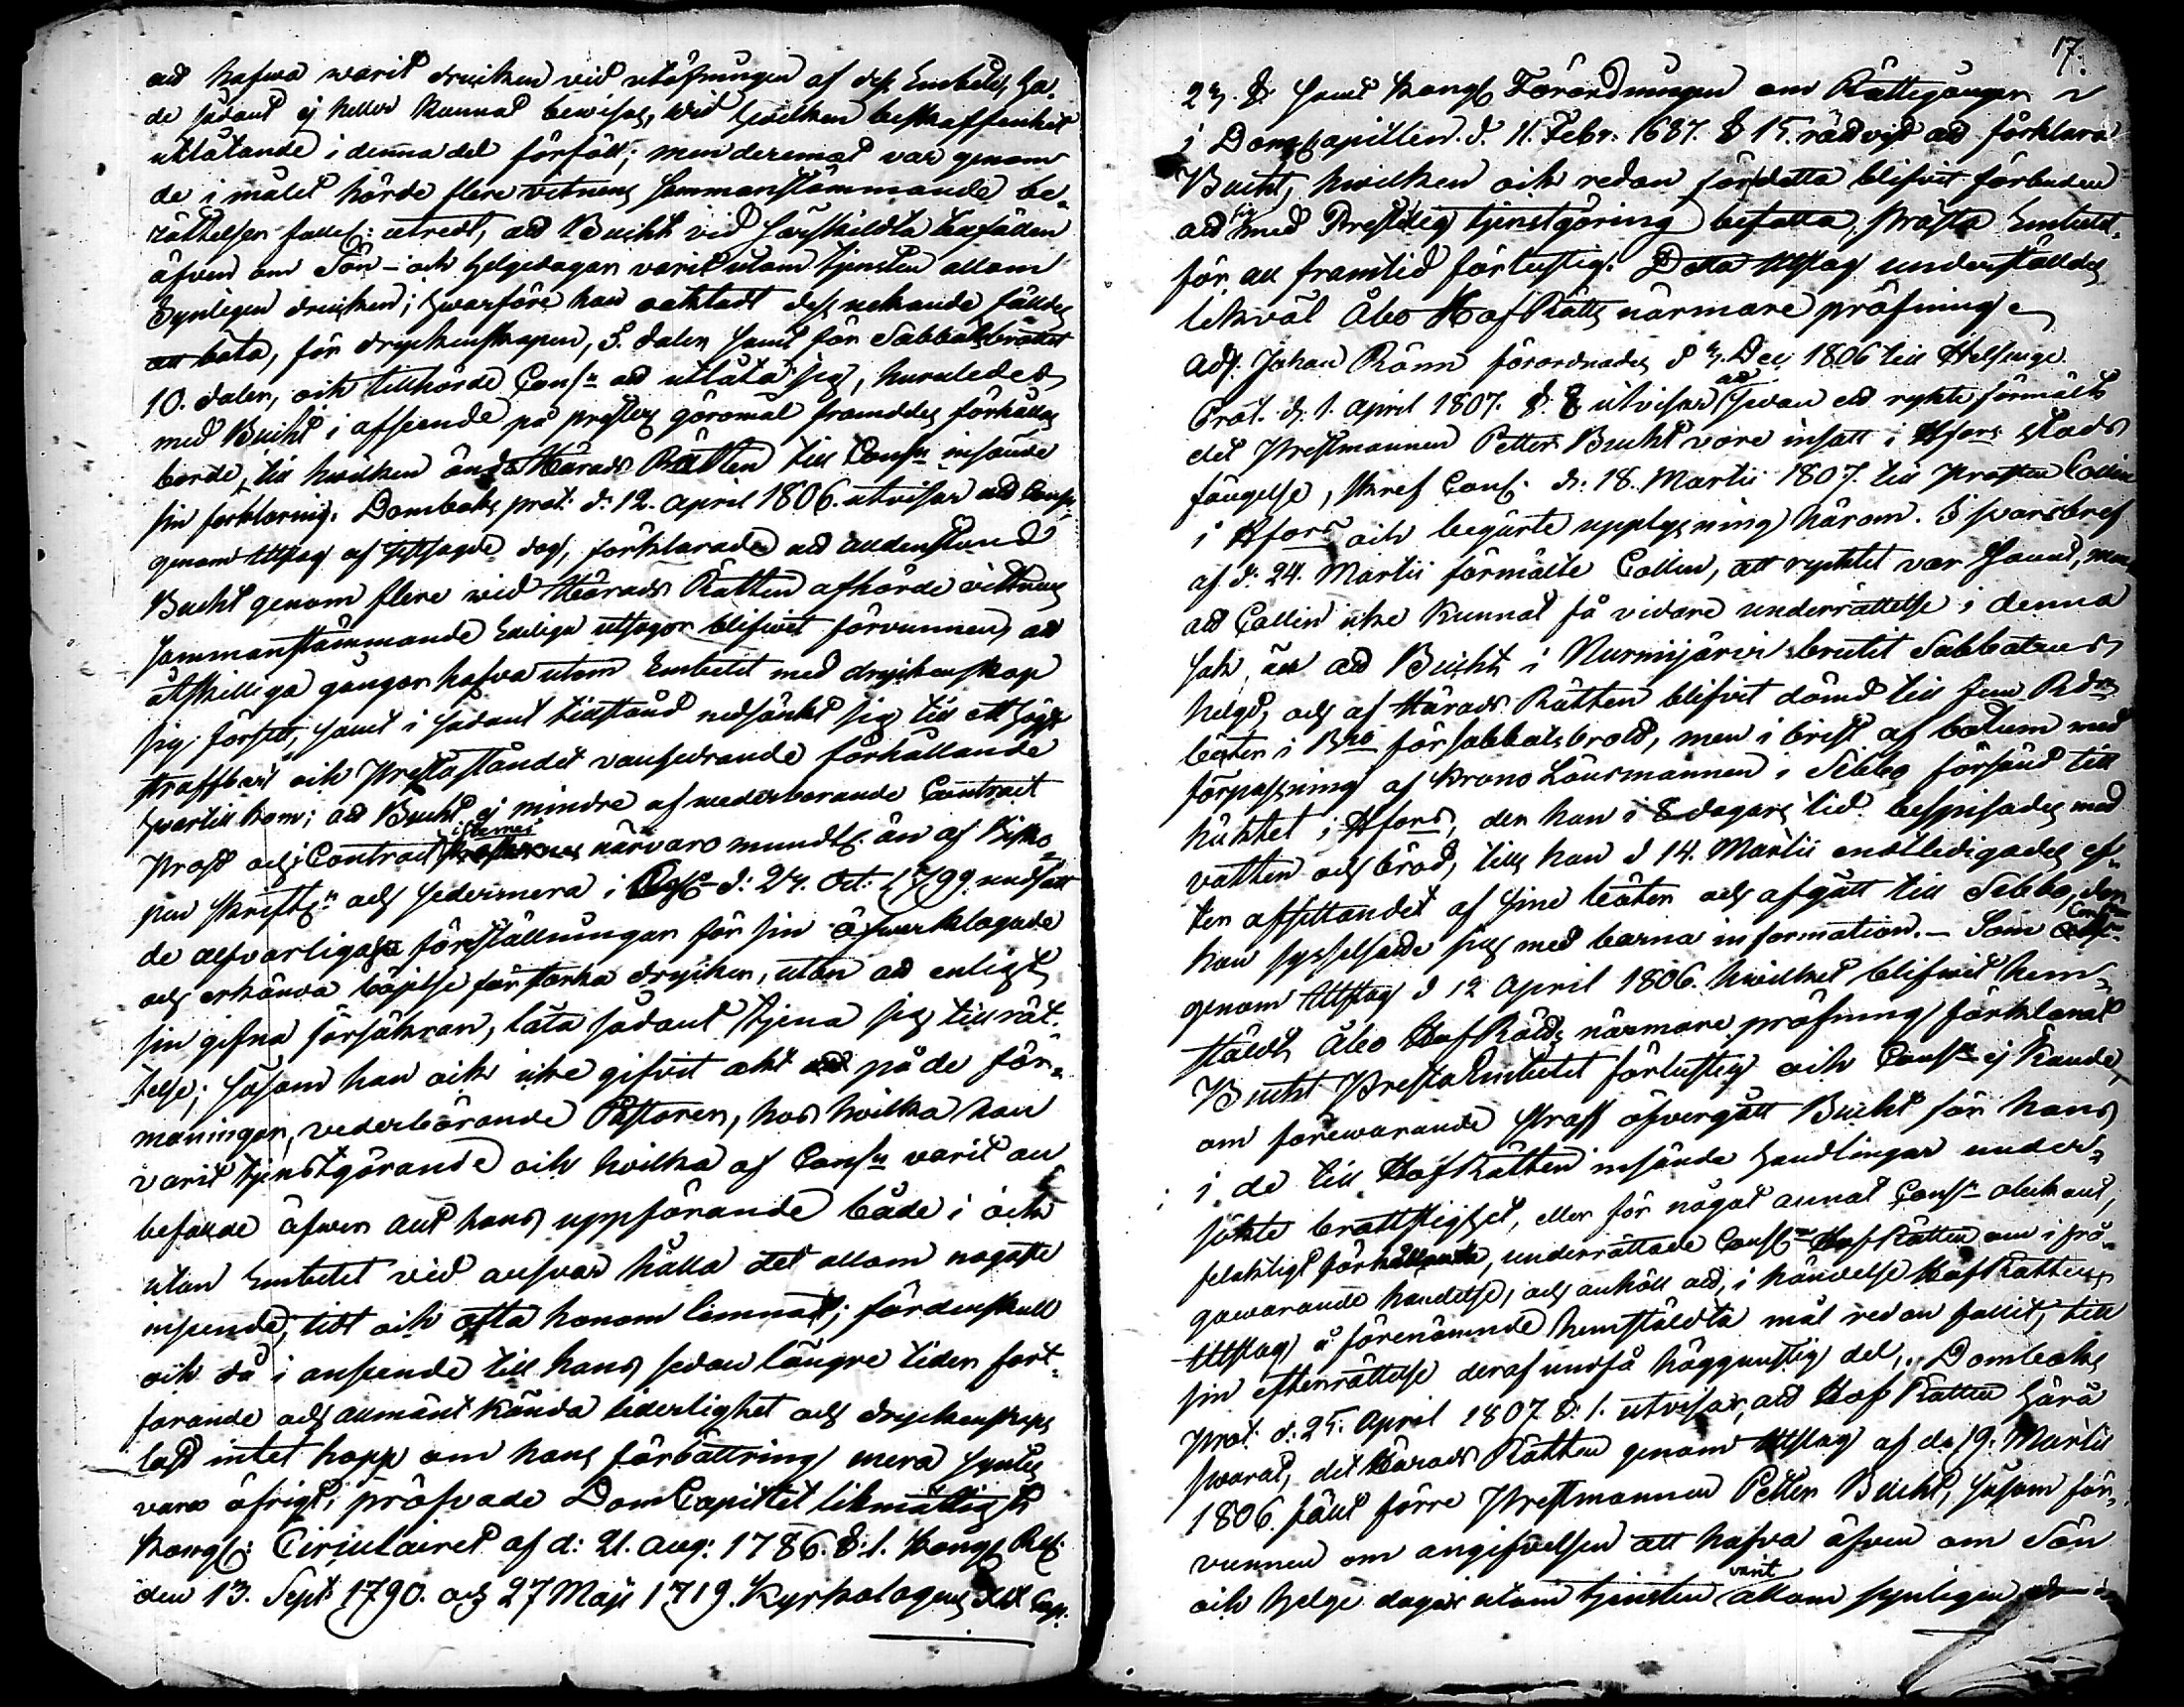 att hafwa warit drucken vid utöfningen af dess Embete, ha-
de sådant ej heller kunnat bewisas, wid hwilken beskaffenhet
utlåtande i denna del förföll; men deremot var genom
de i målet hörde flere vitnens sammanstämmande be-
rättelser fullel: utredt, att Bucht vid särskildta tillfällen
äfven om Sön- och helgedagar varit utom tjensten allom
synligen drucken; hwarföre han oaktadt dess nekande fälldes
att böta, för dryckenskapen, 5. daler samt för Sabbatsbrottet
10. daler, och tillhörde Cons:m att utlåta sig, huruledes
med Bucht i afseende på prestlig göromål framdeles förhållas
borde, till hwilken ända Härads Rätten till Cons:m insände
sin förklaring. Domboks prot. d: 12. April 1806. utvisar att Cons:
genom Utslag af sistsagde dag, förklarade att alldenstund
Bucht genom flere wid Härads Rätten afhörde vittnens
sammanstämmande Edeliga utsagor blifwit förvunnen, att
åtskilliga gånger hafva utom Embetet med dryckenskap
sig försett, samt i sådant tillstånd nedsänkt sig till ett högst
straffbart och Prestaståndet vanhedrande förhållande
hwartill kom; att Bucht ej mindre af wederbörande Contract
Prost och i Contracts isternes närvaro mundtl. än af Bisko-
pen skriftl:n och sedermera i Cons:o d: 24. Oct: 1799. undfått
de alfvarligaste förställningar för sin öfwerklagade
och erkända böjelse för starka drycker, utan att enligt
sin gifna försäkran, låta sådant tjena sig till rät-
telse; såsom han och icke gifvit akt på de för-
maningar, vederbörande Pastorer, hos hvilka han
varit tjenstgörande och hvilka af Cons:m varit an
befalde äfwen att hans uppförande både i och
utan Embetet vid answar hålla det allom nogaste
inseende, titt och ofta honom lemnat; fördenskull
och då i anseende till hans sedan längre tider fort-
farande och allmänt kända liderlighet och dryckenskaps
last intet hopp om hans förbättring mera syntes
vara öfrigt; pröfvade DomCapitlet likmätligt
Kongl: Circulairet af d: 21. Aug: 1786. §: 1. Kongl Res:
den 13. Sept 1790. och 27 Maji 1719. Kyrkolagens XIX Cap:
17.
2. §. samt Kongl Förordningen om Rättegången
i Domcapitlen. d. 11. Febr. 1687. § 15. rättvist att förklara
Bucht, hwilken och redan fördetta blifvit förbuden
att sig med Prestlig tjenstgöring befatta, Prästa Embetet
för all framtid förlustig. Detta Utslag underställdes
likväl Åbo HofRätts närmare pröfning.
Adj. Johan Rönn förordnades d . Dec 1806 till Helsinge.
Prot. d. 1. April 1807. §. 8 utvisar att sedan ett rykte förmält
det Prestmannen Petter Bucht vore insatt i Hfors stads
fängelse, skref Cons: d: 18. Martii 1807. till Prosten Collin
i Hfors och begärte upplysning härom. I svarsbref
af d: 24. Martii förmälte Collin, att ryktet var sannt, men
att Collin icke kunnat få vidare underrättelse i denna
sak, än att Bucht i Nurmijärvi brutit Sabbatens
helgd, och af Härads Rätten blifvit dömd till fem Rdrs
böter i B:co för sabbatsbrott, men i brist af botum med
förpassning af Krono Länsmannen i Sibbo försänd till
häktet i Hfors, der han i 8 dagars tid bespisades med
vatten och bröd, tills han d 14. Martii entledigades ef-
ter afsittandet af sine böter och afgått till Sibbo, der
han sysselsatte sig med barna information. – Som Cons:m
genom Utslag d 12 April 1806. hwilket blifwit hem-
stäldt Åbo HofRätts närmare pröfning förklarat
Bucht Presta Embetet förlustig och Cons:m ej kände,
om förewarande straff öfvergått Bucht för hans
i de till HofRätten insände handlingar under-
sökte brottslighet, eller för något annat Cons:m obekant,
felaktigt förhållande, underrättade Cons:m HofRätten om i frå-
gawarande händelse, och anhöll att, i händelse HofRättens
Utslag å förenämnde hemstäldta mål redan fallit, till
sin efterrättelse deraf undfå höggunstig del. Domboks
Prot. d: 25. April 1807. §: 1. utvisar, att HofRätten härå
svarat, det Härads Rätten genom Utslag af d. 19. Martii
1806. fält förre Prestmannen Petter Bucht, såsom för-
vunnen om angifvelsen att hafva äfven om Sön
och helge dagar utom tjensten varit allom synligen